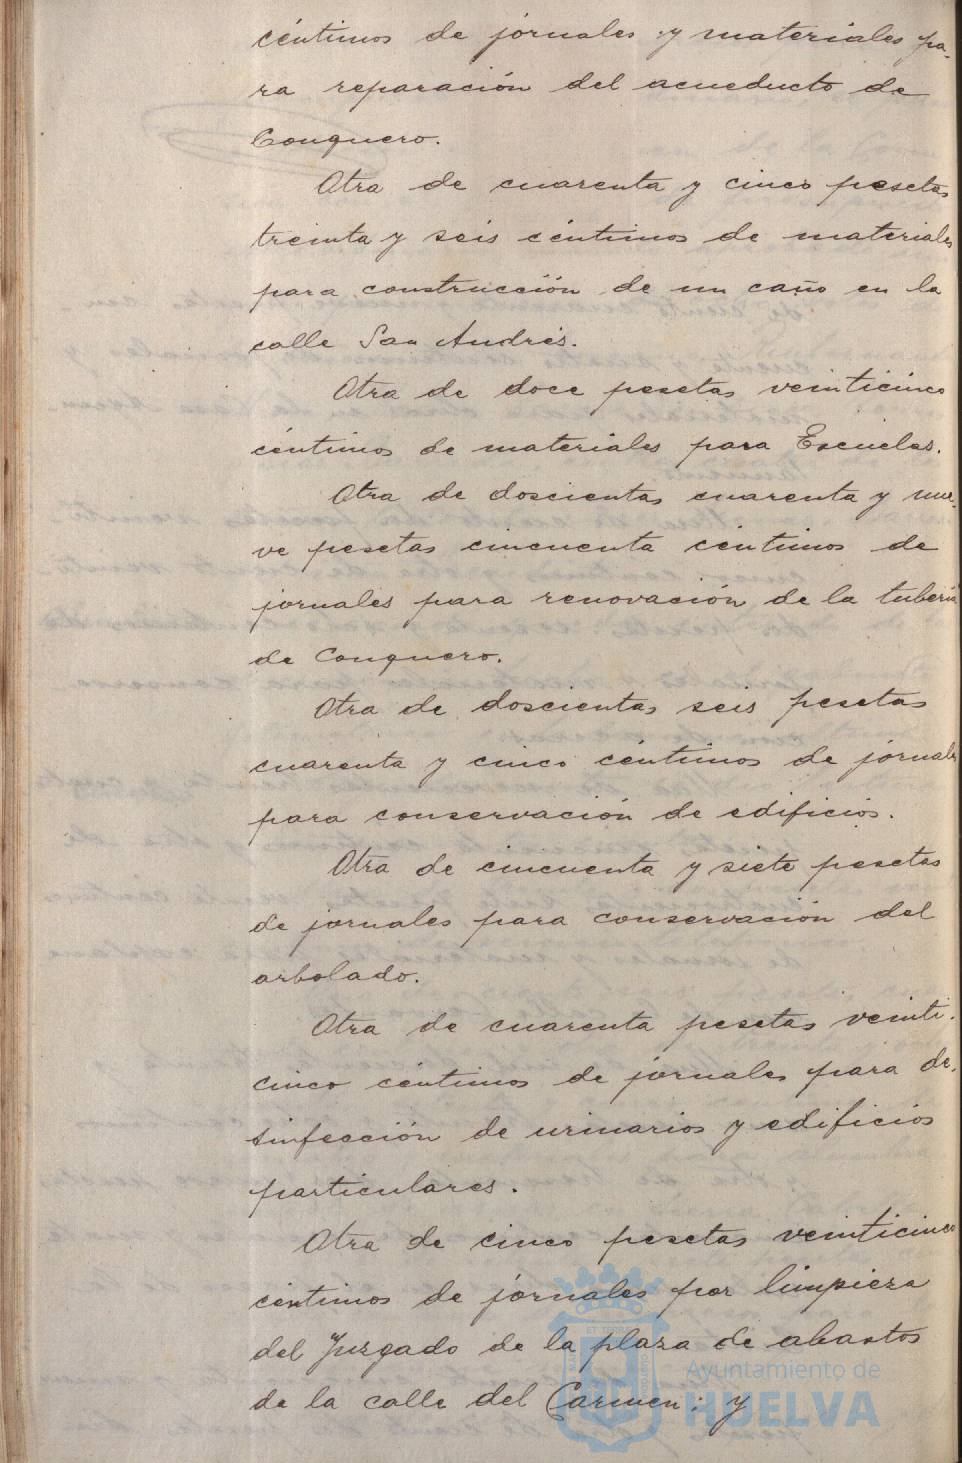 céntimos de jornales y materiales pa-
ra reparación del acueducto de
Conquero.
Otra de cuarenta y cinco pesetas
treinta y seis céntimos de materiales
para construcción de un caño en la
calle San Andrés.
Otra de doce pesetas veinticinco
céntimos de materiales para Escuelas.
Otra de doscientas cuarenta y nue-
ve pesetas cincuenta céntimos de
jornales para renovación de la tubería
de Conquero.
Otra de doscientas seis pesetas
cuarenta y cinco céntimos de jornales
para conservación de edificios.
Otra de cincuenta y siete pesetas
de jornales para conservación del
arbolado.
Otra de cuarenta pesetas veinti-
cinco céntimos de jornales para de-
sinfección de urinarios y edificios
particulares.
Otra de cinco pesetas veinticinco
céntimos de jornales por limpieza
del Juzgado de la plaza de abastos
de la calle del Carmen: y
Ayuntamiento de
HUELVA